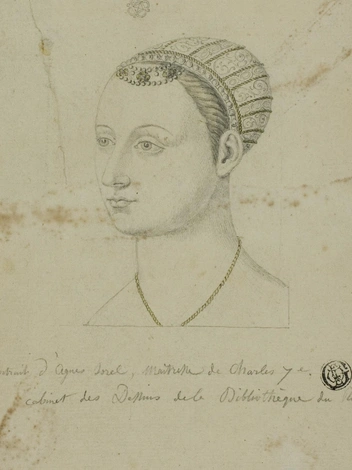 ortrait d'Agnes Sorel, Maîtresse de Charles 7e.
cabinet des Dessins de le Bibliothèque du